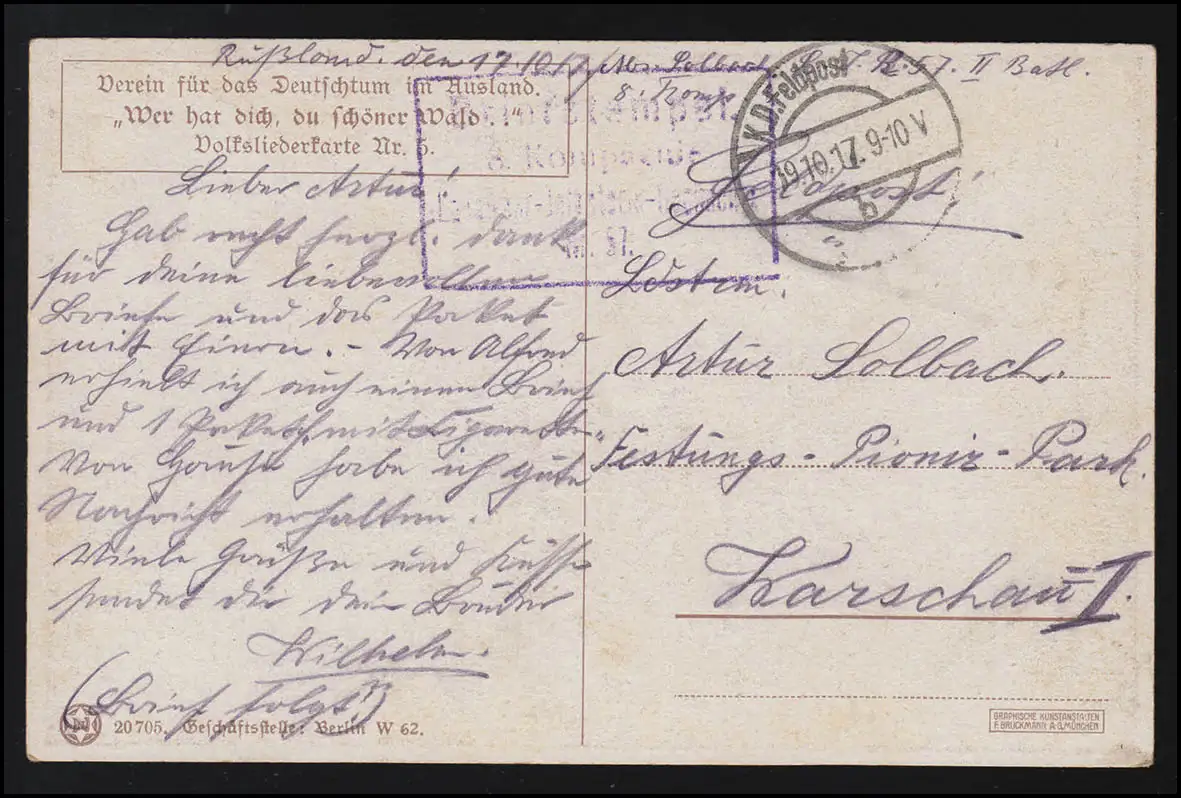 Rußland, den 17.10.17 Abs. Solbach L. I. R. 57. II Batl.
8. Komp
Verein für das Deutschtum im Ausland.
„Wer hat dich, du schöner Wald...!“
Volksliederkarte Nr. 5.
8. Kompagnie
Landwehr-Infanterie-Regiment
Nr. 57.
K.D. Feldpost
19.10.17. 9-10 V
b
Lieber Artur!
Hab recht herzl. Dank
für deine liebevollen
Briefe und das Paket
mit Birnen. – Von Alfred
erhielt ich auch einen Brief
und 1 Paketch. mit Zigaretten
Von Hause habe ich gute
Nachricht erhalten.
Viele Grüße und Küsse
sendet dir dein Bruder
Wilhelm.
(Brief folgt)
Feldpost!
Artur Solbach.
Festungs-Pionir-Park.
Warschau I.
20705. Geschäftsstelle: Berlin W 62.
GRAPHISCHE KUNSTANSTALTEN
F. BRUCKMANN A-G. MÜNCHEN